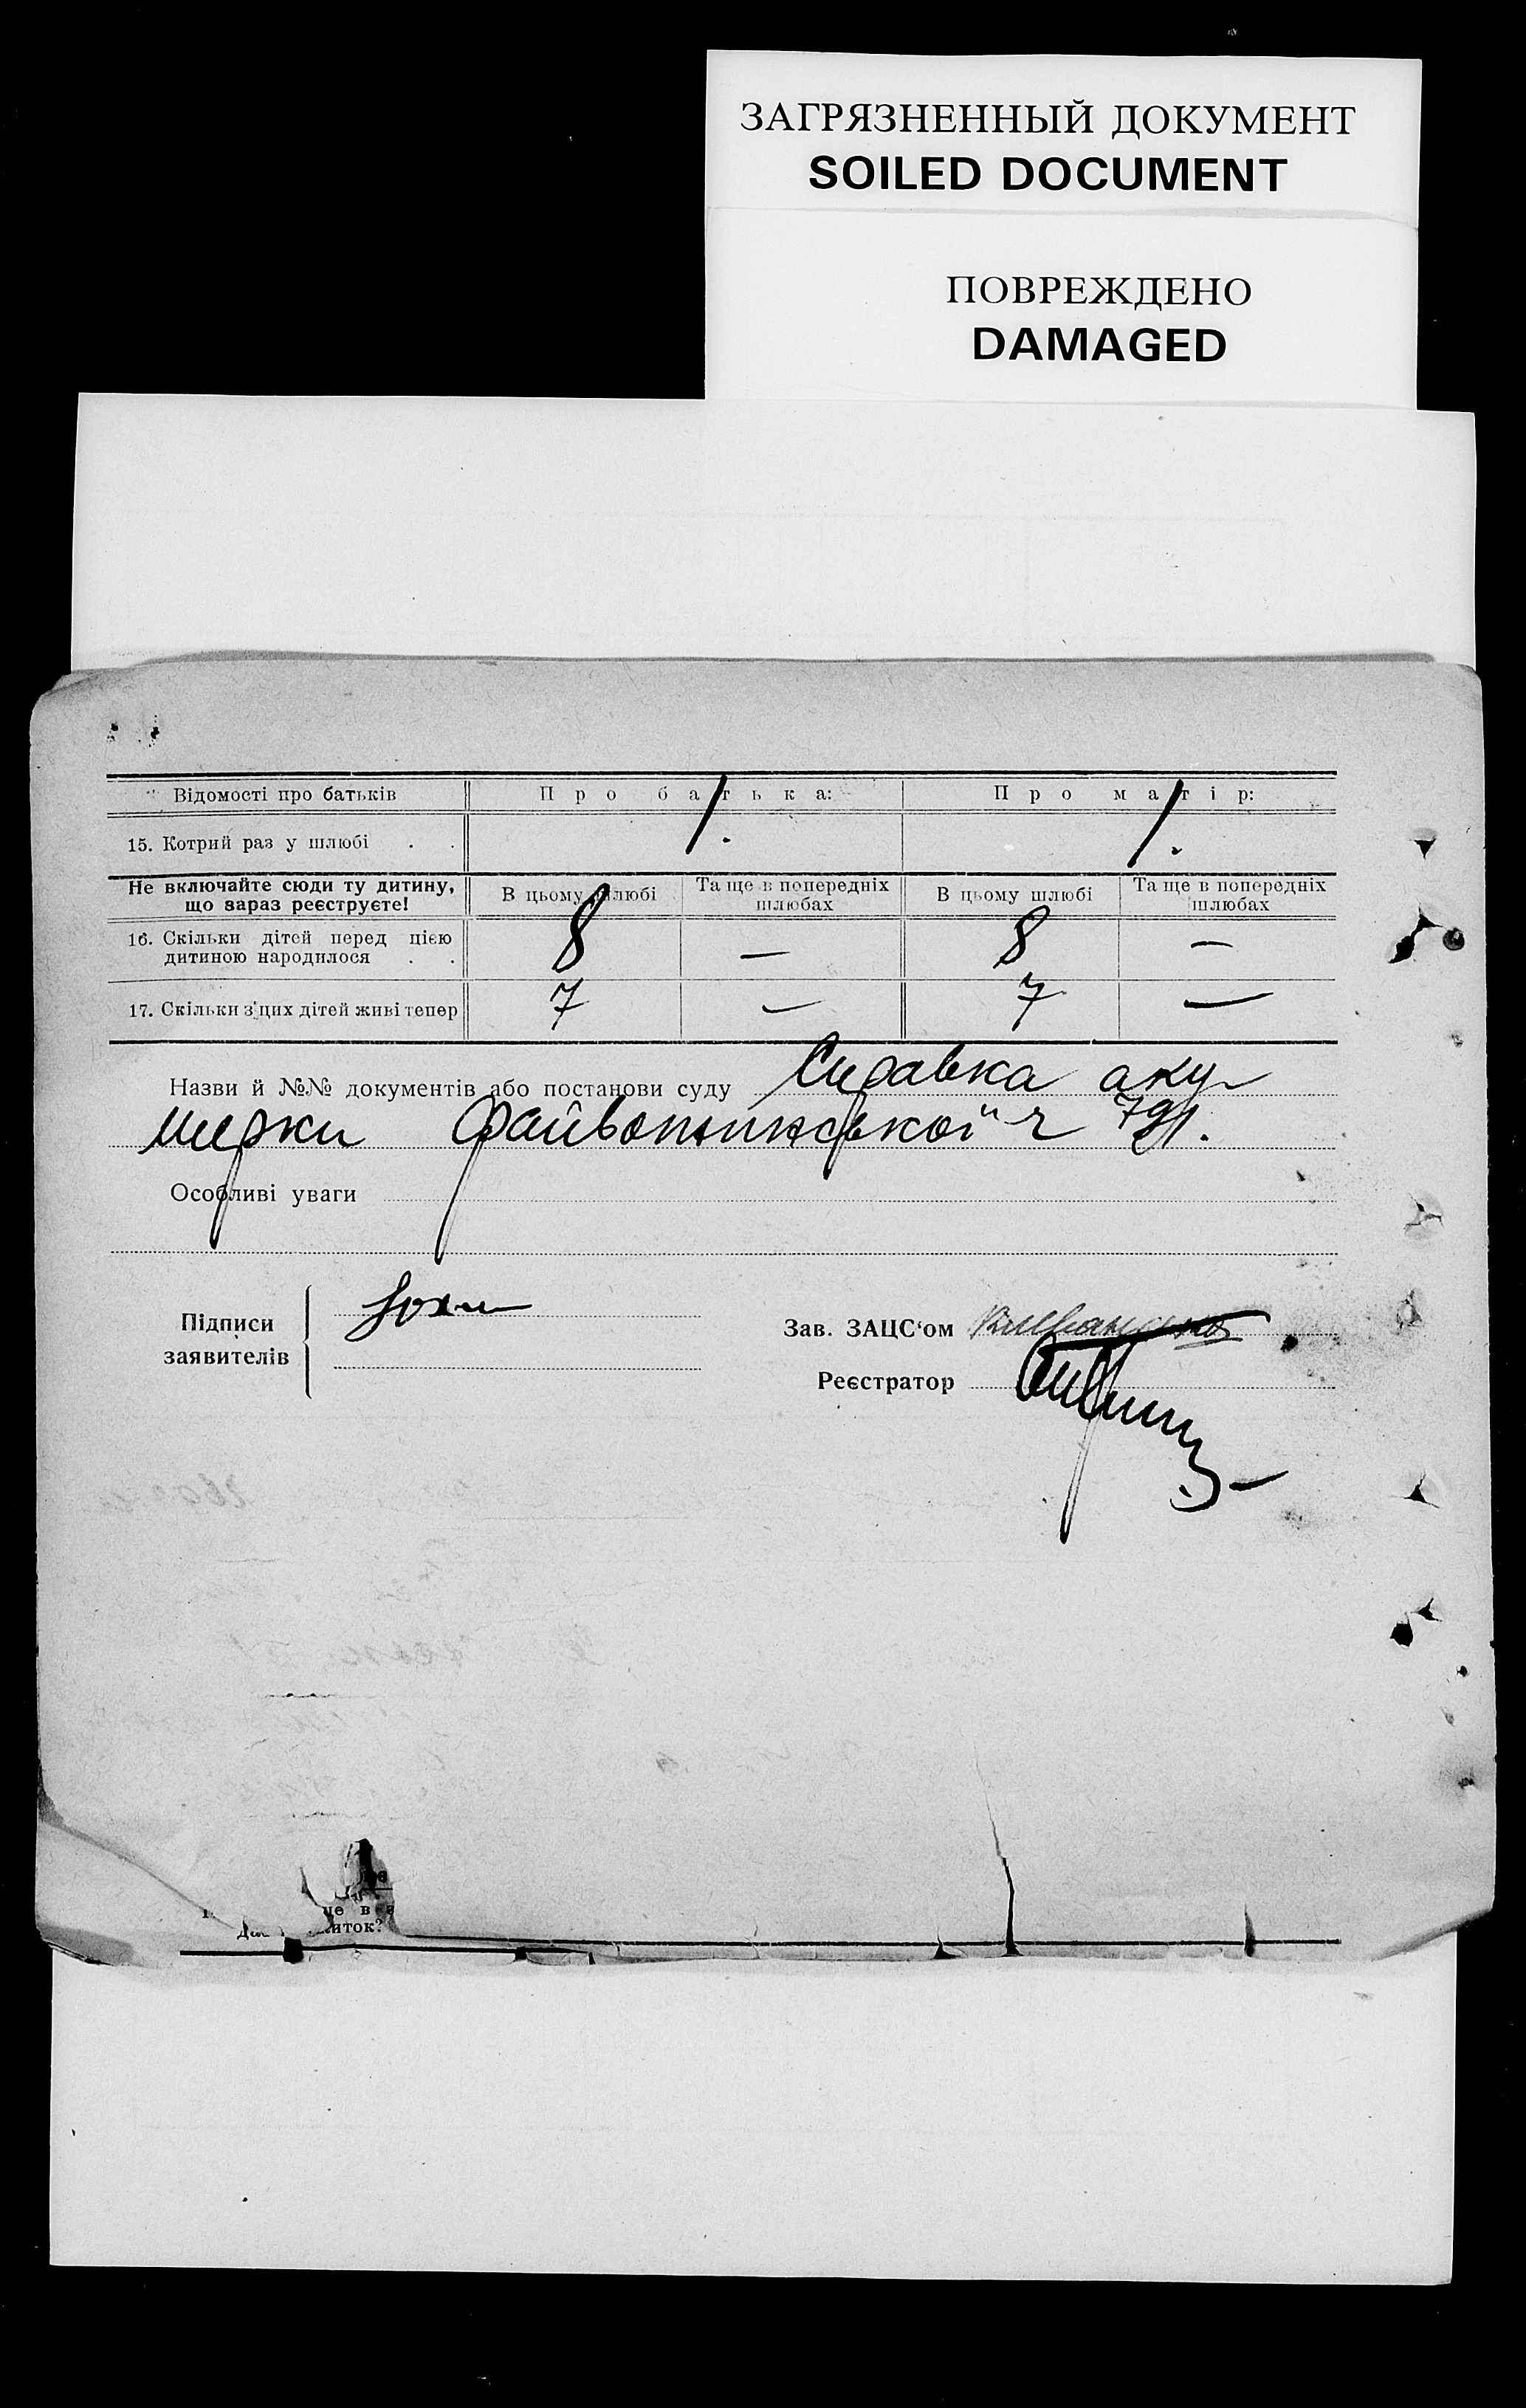 ЗАГРЯЗНЕННЫЙ ДОКУМЕНТ
SOILED DOCUMENT
ПОВРЕЖДЕНО
DAMAGED
Відомості про батьків Про батька: Про матір:
15. Котрий раз у шлюбі . . 1. 1.
Не включайте сюди ту дитину, що зараз реєструєте! В цьому шлюбі Та ще в попередніх шлюбах В цьому шлюбі Та ще в попередніх шлюбах
16. Скільки дітей перед цією дитиною народилося . . 8 — 8 —
17. Скільки з цих дітей живі тепер 7 — 7 —
Назви й №№ документів або постанови суду Справка аку-
шерки
Особливі уваги
Підписи заявителів
Зав. ЗАЦС'ом
Реєстратор